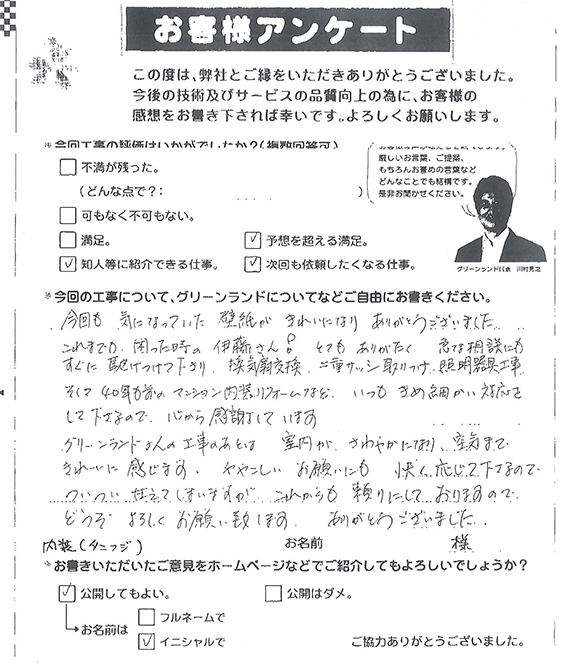 お客様アンケート
この度は、弊社とご縁をいただきありがとうございました。
今後の技術及びサービスの品質向上の為に、お客様の
感想をお書き下されば幸いです。よろしくお願いします。
※今回工事の評価はいかがでしたか？(複数回答可)
不満が残った。
(どんな点で？: )
可もなく不可もない。
満足。
予想を超える満足。
知人等に紹介できる仕事。
次回も依頼したくなる仕事。
厳しいお言葉、ご提案、
もちろんお誉めの言葉など
どんなことでも結構です。
是非お聞かせください。
グリーンランド代表 川村
※今回の工事について、グリーンランドについてなどご自由にお書きください。
今回も 気になっていた 壁紙が きれいになり ありがとうございました
これまでも 困った時の 伊藤さん!! とても ありがたく 急な相談にも
すぐに 駆けつけて下さり、換気扇交換、二重サッシ取りつけ、照明器具工事、
そして 40年も前の マンション内装リフォームなど、いつも きめ細かい 対応を
して下さるので、心から 感謝しています
グリーンランドさんの 工事のあとは 室内が さわやかになり、空気まで
きれいに 感じます。ややこしい お願いにも 快く 応じて下さるので
ついつい 甘えてしまいますが、これからも 頼りにして おりますので
どうぞ よろしく お願い致します。ありがとうございました。
内装(タニフジ)
お名前 様
※お書きいただいたご意見をホームページなどでご紹介してもよろしいでしょうか？
公開してもよい。
公開はダメ。
お名前は
フルネームで
イニシャルで
ご協力ありがとうございました。